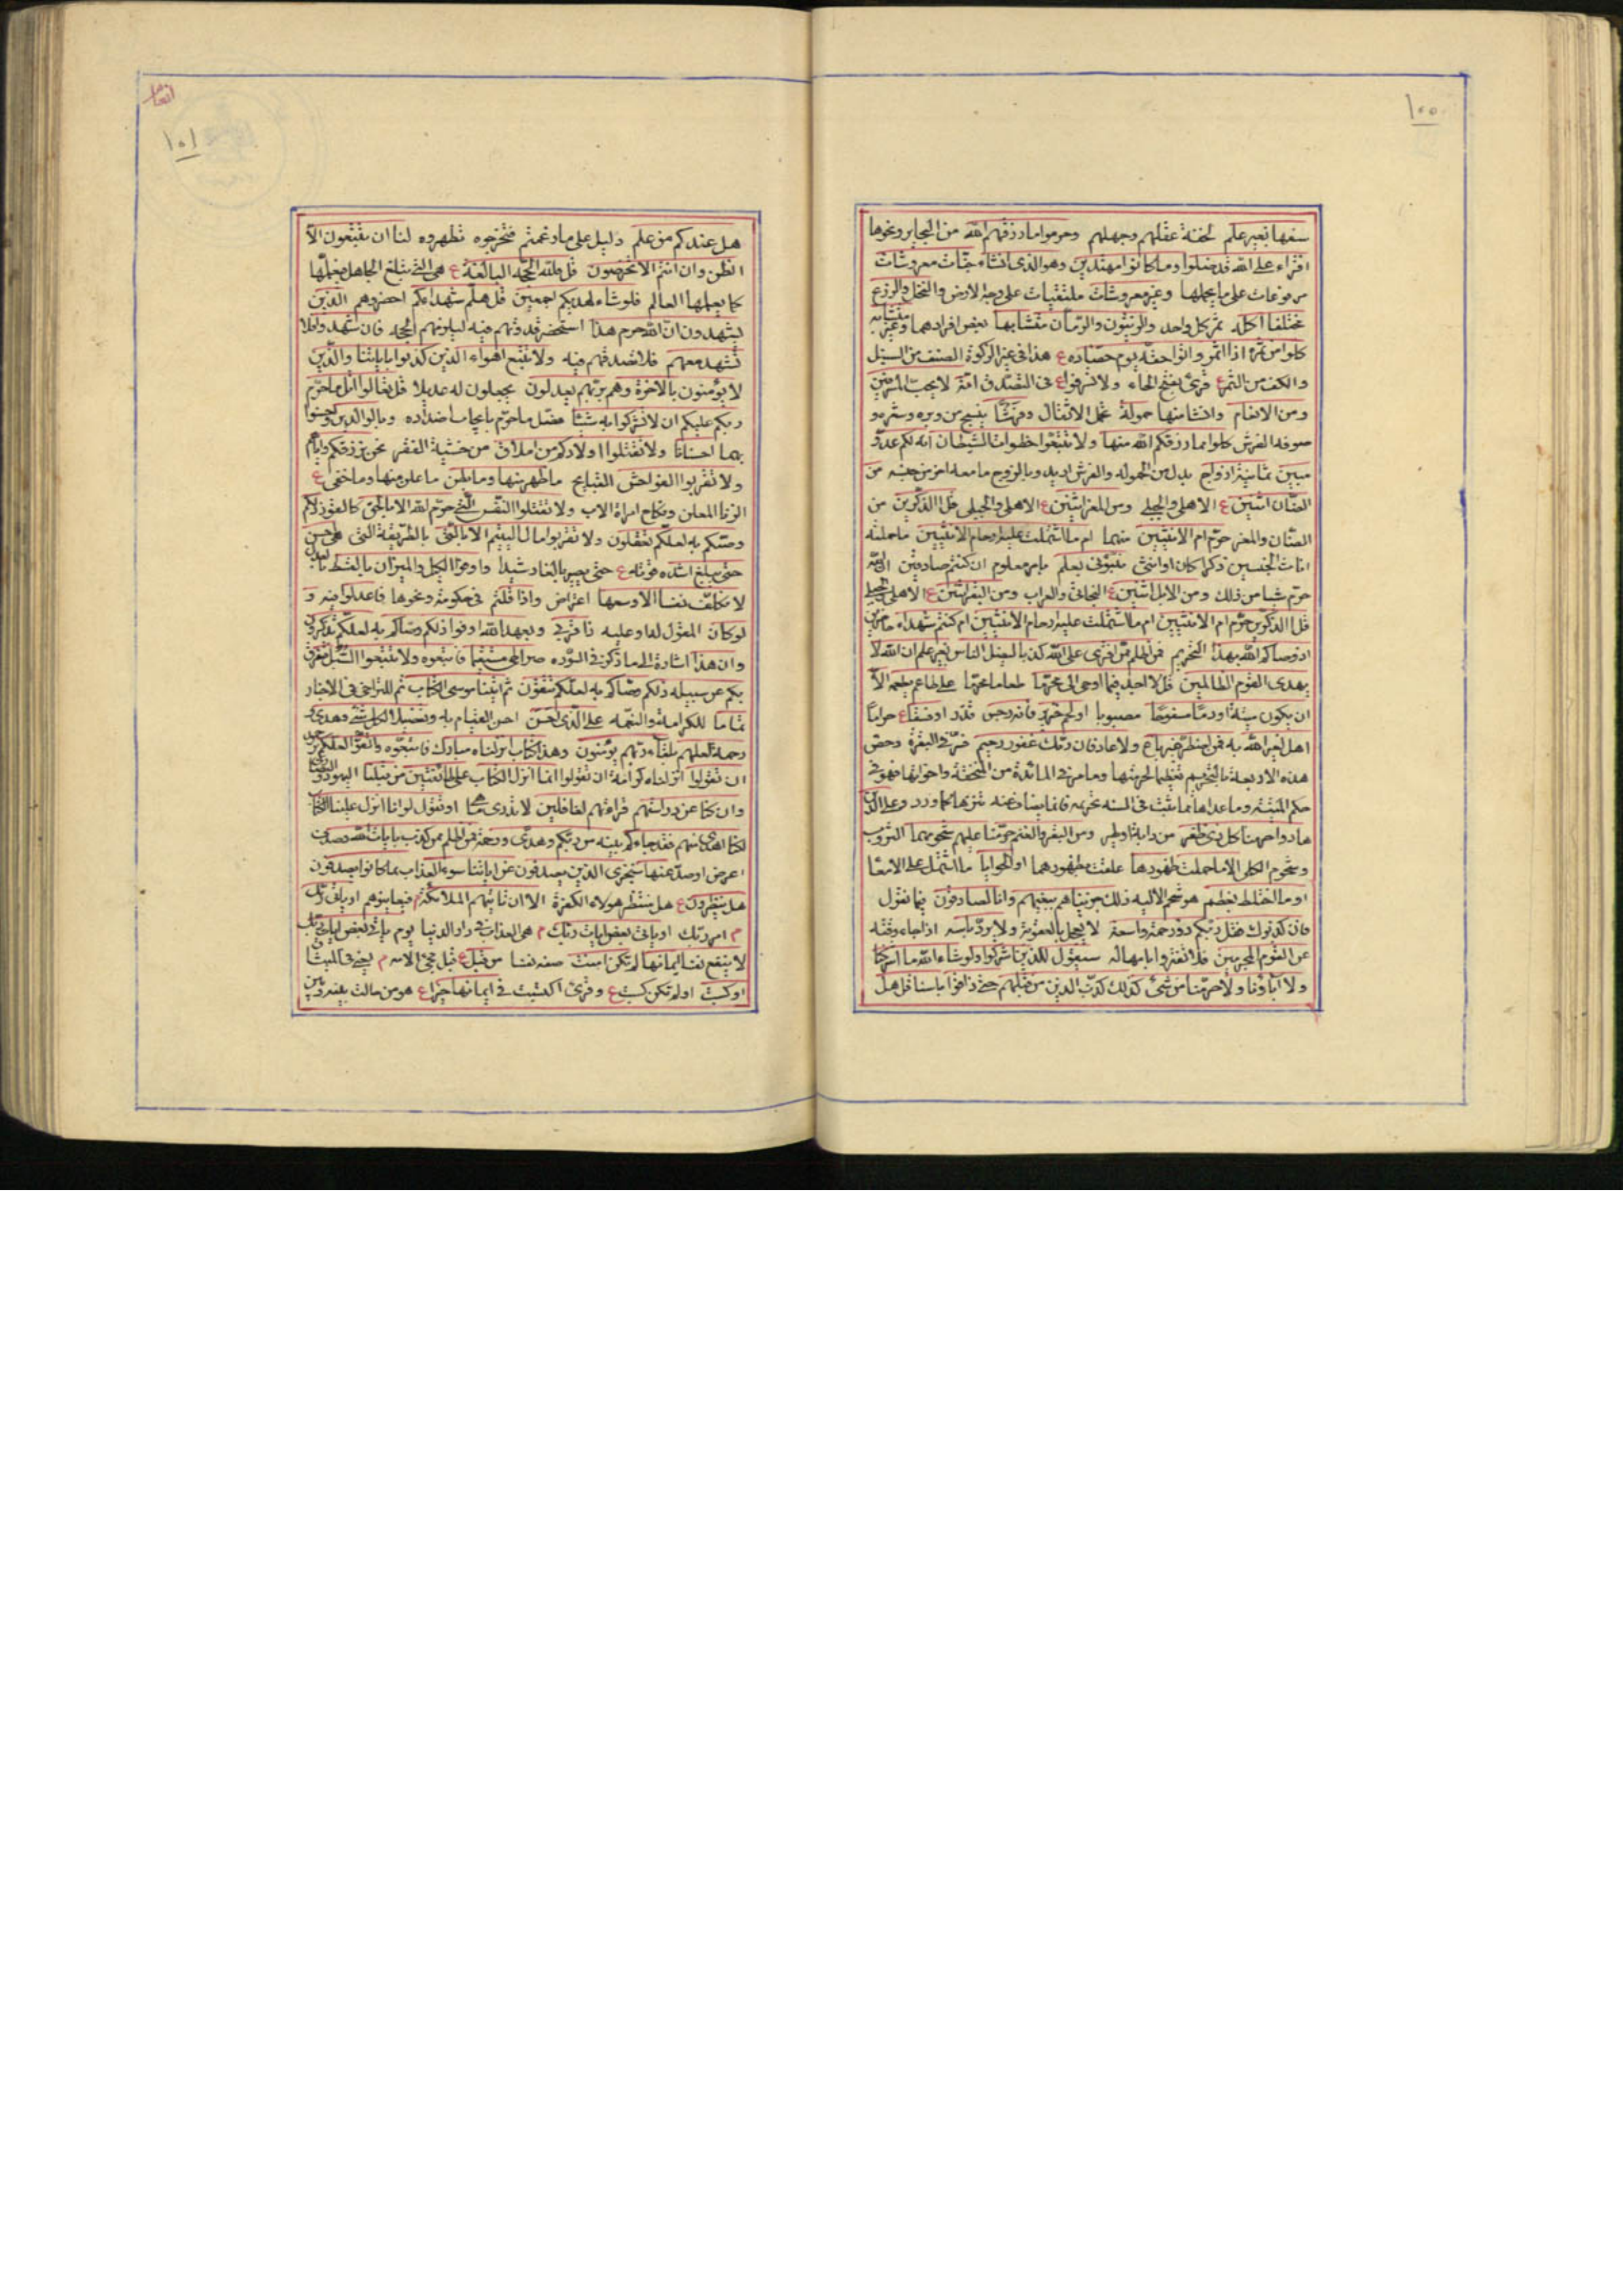 ١٠٠
سفها بغير علم لخفة عقلهم وجهلهم وحرموا ما رزقهم الله من البحاير ونحوها
افتراء على الله قد ضلوا وما كانوا مهتدين وهو الذي انشاء جنات معروشات
مرفوعات على ما يحملها وغير معروشات ملتقيات على وجه الارض والنخل والزرع
مختلفا اكله ثمر كل واحد والزيتون والرمان متشابها بعض افرادهما وغير متشابه
كلوا من ثمره اذا اثمر واتوا حقه يوم حصاده ع هذا في غير الزكوة الضغث من السنبل
والكف من التمر ع قرئ بفتح الحاء ولا تسرفوا ع في التصدق انه لا يحب المسرفين
ومن الانعام وانشا منها حمولة تحمل الاثقال وفرشا ينسج من وبره وشعره و
صوفه الفرش كلوا مما رزقكم الله منها ولا تتبعوا خطوات الشيطان انه لكم عدو
مبين ثمانية ازواج بدل من حمولة والفرش اريد وبالزوج ما معه اخر من جنسه من
الضان اثنين ع الاهلي والجبلي ومن المعز اثنين ع الاهلي والجبلي قل االذكرين من
الضان والمعز حرم ام الانثيين منهما ام ما اشتملت عليه ارحام الانثيين ما حملته
اناث الجنسين ذكرا كان او انثى نبئوني بعلم بامر معلوم ان كنتم صادقين ان الله
حرم شيا من ذلك ومن الابل اثنين ع البخاتي والعراب ومن البقر اثنين ع الاهلي والجبلي
قل االذكرين حرم ام الانثيين ام ما اشتملت عليه ارحام الانثيين ام كنتم شهداء حاضرين
اذ وصاكم الله بهذا التحريم فمن اظلم ممن افترى على الله كذبا ليضل الناس بغير علم ان الله لا
يهدي القوم الظالمين قل لا اجد فيما اوحي الي محرما طعاما محرما على طاعم يطعمه الا
ان يكون ميتة او دما مسفوحا مصبوبا او لحم خنزير فانه رجس قذر او فسقا ع حراما
اهل لغير الله به فمن اضطر غير باغ ولا عاد فان ربك غفور رحيم فسر في البقرة وخص
هذه الاربعة بالتحريم تغليظا لحرمتها وما مر في المائدة من المنخنقة واخواتها فهو في
حكم الميتة وما عداها مما يثبت في السنة تحريمه فانما يعاف عنه تنزها كما ورد وعلى الذين
هادوا حرمنا كل ذي ظفر من دابة او طير ومن البقر والغنم حرمنا عليهم شحومهما الثروب
وشحوم الكلى الا ما حملت ظهورهما علقت بظهورهما او الحوايا ما اشتمل على الامعا
او ما اختلط بعظم هو شحم الالية ذلك جزيناهم ببغيهم وانا لصادقون فيما نقول
فان كذبوك فقل ربكم ذو رحمة واسعة لا يعجل بالعقوبة ولا يرد باسه اذا جاء وقته
عن القوم المجرمين فلا تغتروا بامهاله سيقول للذين اشركوا لو شاء الله ما اشركنا
ولا اباؤنا ولا حرمنا من شيء كذلك كذب الذين من قبلهم حتى ذاقوا باسنا قل هل
انعام
١٠١
هل عندكم من علم دليل على ما زعمتم فتخرجوه تظهروه لنا ان تتبعون الا
الظن وان انتم الا تخرصون قل فلله الحجة البالغة ع هي التي تبلغ الجاهل فيعلمها
كما يعلمها العالم فلو شاء لهديكم اجمعين قل هلم شهداءكم احضروهم الذين
يشهدون ان الله حرم هذا استحضر قدوتهم فيه ليلزمهم الحجة فان شهدوا فلا
تشهد معهم فلا تصدقهم فيه ولا تتبع اهواء الذين كذبوا باياتنا والذين
لا يؤمنون بالاخرة وهم بربهم يعدلون يجعلون له عديلا قل تعالوا اتل ما حرم
ربكم عليكم ان لا تشركوا به شيئا فصل ما حرم بايجاب اضداده وبالوالدين واحسنوا
بهما احسانا ولا تقتلوا اولادكم من املاق من خشية الفقر نحن نرزقكم واياهم
ولا تقربوا الفواحش القبايح ما ظهر منها وما بطن ما علن منها وما خفي ع
الزنا المعلن ونكاح امراة الاب ولا تقتلوا النفس التي حرم الله الا بالحق كالقود ذلكم
وصيكم به لعلكم تعقلون ولا تقربوا مال اليتيم الا بالتي بالطريقة التي هي احسن
حتى يبلغ اشده قوته ع حتى يصير بالغا رشيدا واوفوا الكيل والميزان بالقسط بالعدل
لا نكلف نفسا الا وسعها اعتراض واذا قلتم في حكومة ونحوها فاعدلوا فيه و
لو كان المقول له او عليه ذا قربى وبعهد الله اوفوا ذلكم وصاكم به لعلكم تذكرون
وان هذا اشارة الى ما ذكر في السورة صراطي مستقيما فاتبعوه ولا تتبعوا السبل فتفرق
بكم عن سبيله ذلكم وصاكم به لعلكم تتقون ثم اتينا موسى الكتاب ثم للتراخي في الاخبار
تماما للكرامة والنعمة على الذي احسن احسن القيام به وتفصيلا لكل شيء وهدى و
رحمة لعلهم بلقاء ربهم يؤمنون وهذا كتاب انزلناه مبارك فاتبعوه واتقوا لعلكم ترحمون
ان تقولوا انزلناه كراهة ان تقولوا انما انزل الكتاب على طائفتين من قبلنا اليهود والنصارى
وان كنا عن دراستهم قراءتهم لغافلين لا ندري ما هي او تقولوا لو انا انزل علينا الكتاب
لكنا اهدى منهم فقد جاءكم بينة من ربكم وهدى ورحمة فمن اظلم ممن كذب بايات الله وصدف
اعرض او صد عنها سنجزي الذين يصدفون عن اياتنا سوء العذاب بما كانوا يصدفون
هل ينظرون ع هل ينتظر هولاء الكفرة الا ان تاتيهم الملائكة م فيعاينوهم او ياتي ربك
م امر ربك او ياتي بعض ايات ربك م هي العذاب في دار الدنيا يوم ياتي بعض ايات ربك
لا ينفع نفسا ايمانها لم تكن امنت صفة نفسا من قبل ع قبل مجيء الاية م يعني في الميثاق
او كسبت او لم تكن كسبت ع وقرئ اكتسبت في ايمانها خيرا ع هو من حالت بينه وبين